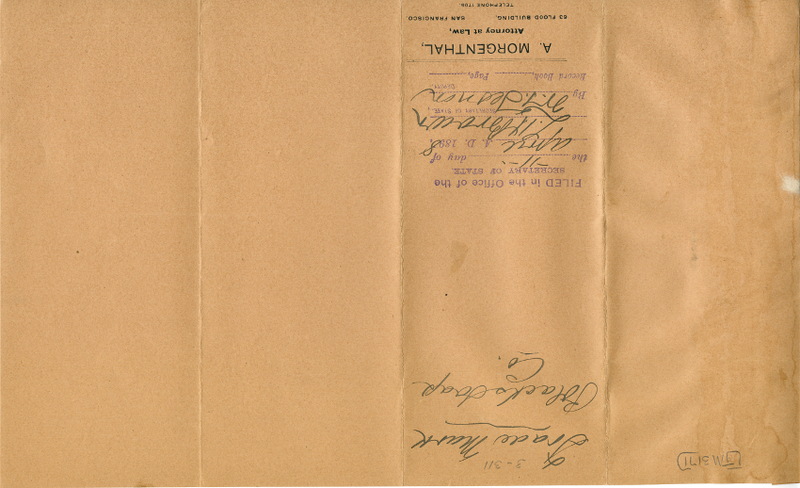 3-311
Trade Mark
Blacks Soap
Co.
FILED in the Office of the
SECRETARY OF STATE
the 11 day of
April A. D. 1898,
L. H. Brown
SECRETARY OF STATE,
By W. T. Sesnon
DEPUTY.
Record Book, Page,
A. MORGENTHAL,
Attorney at Law,
63 FLOOD BUILDING, SAN FRANCISCO.
TELEPHONE 1706.